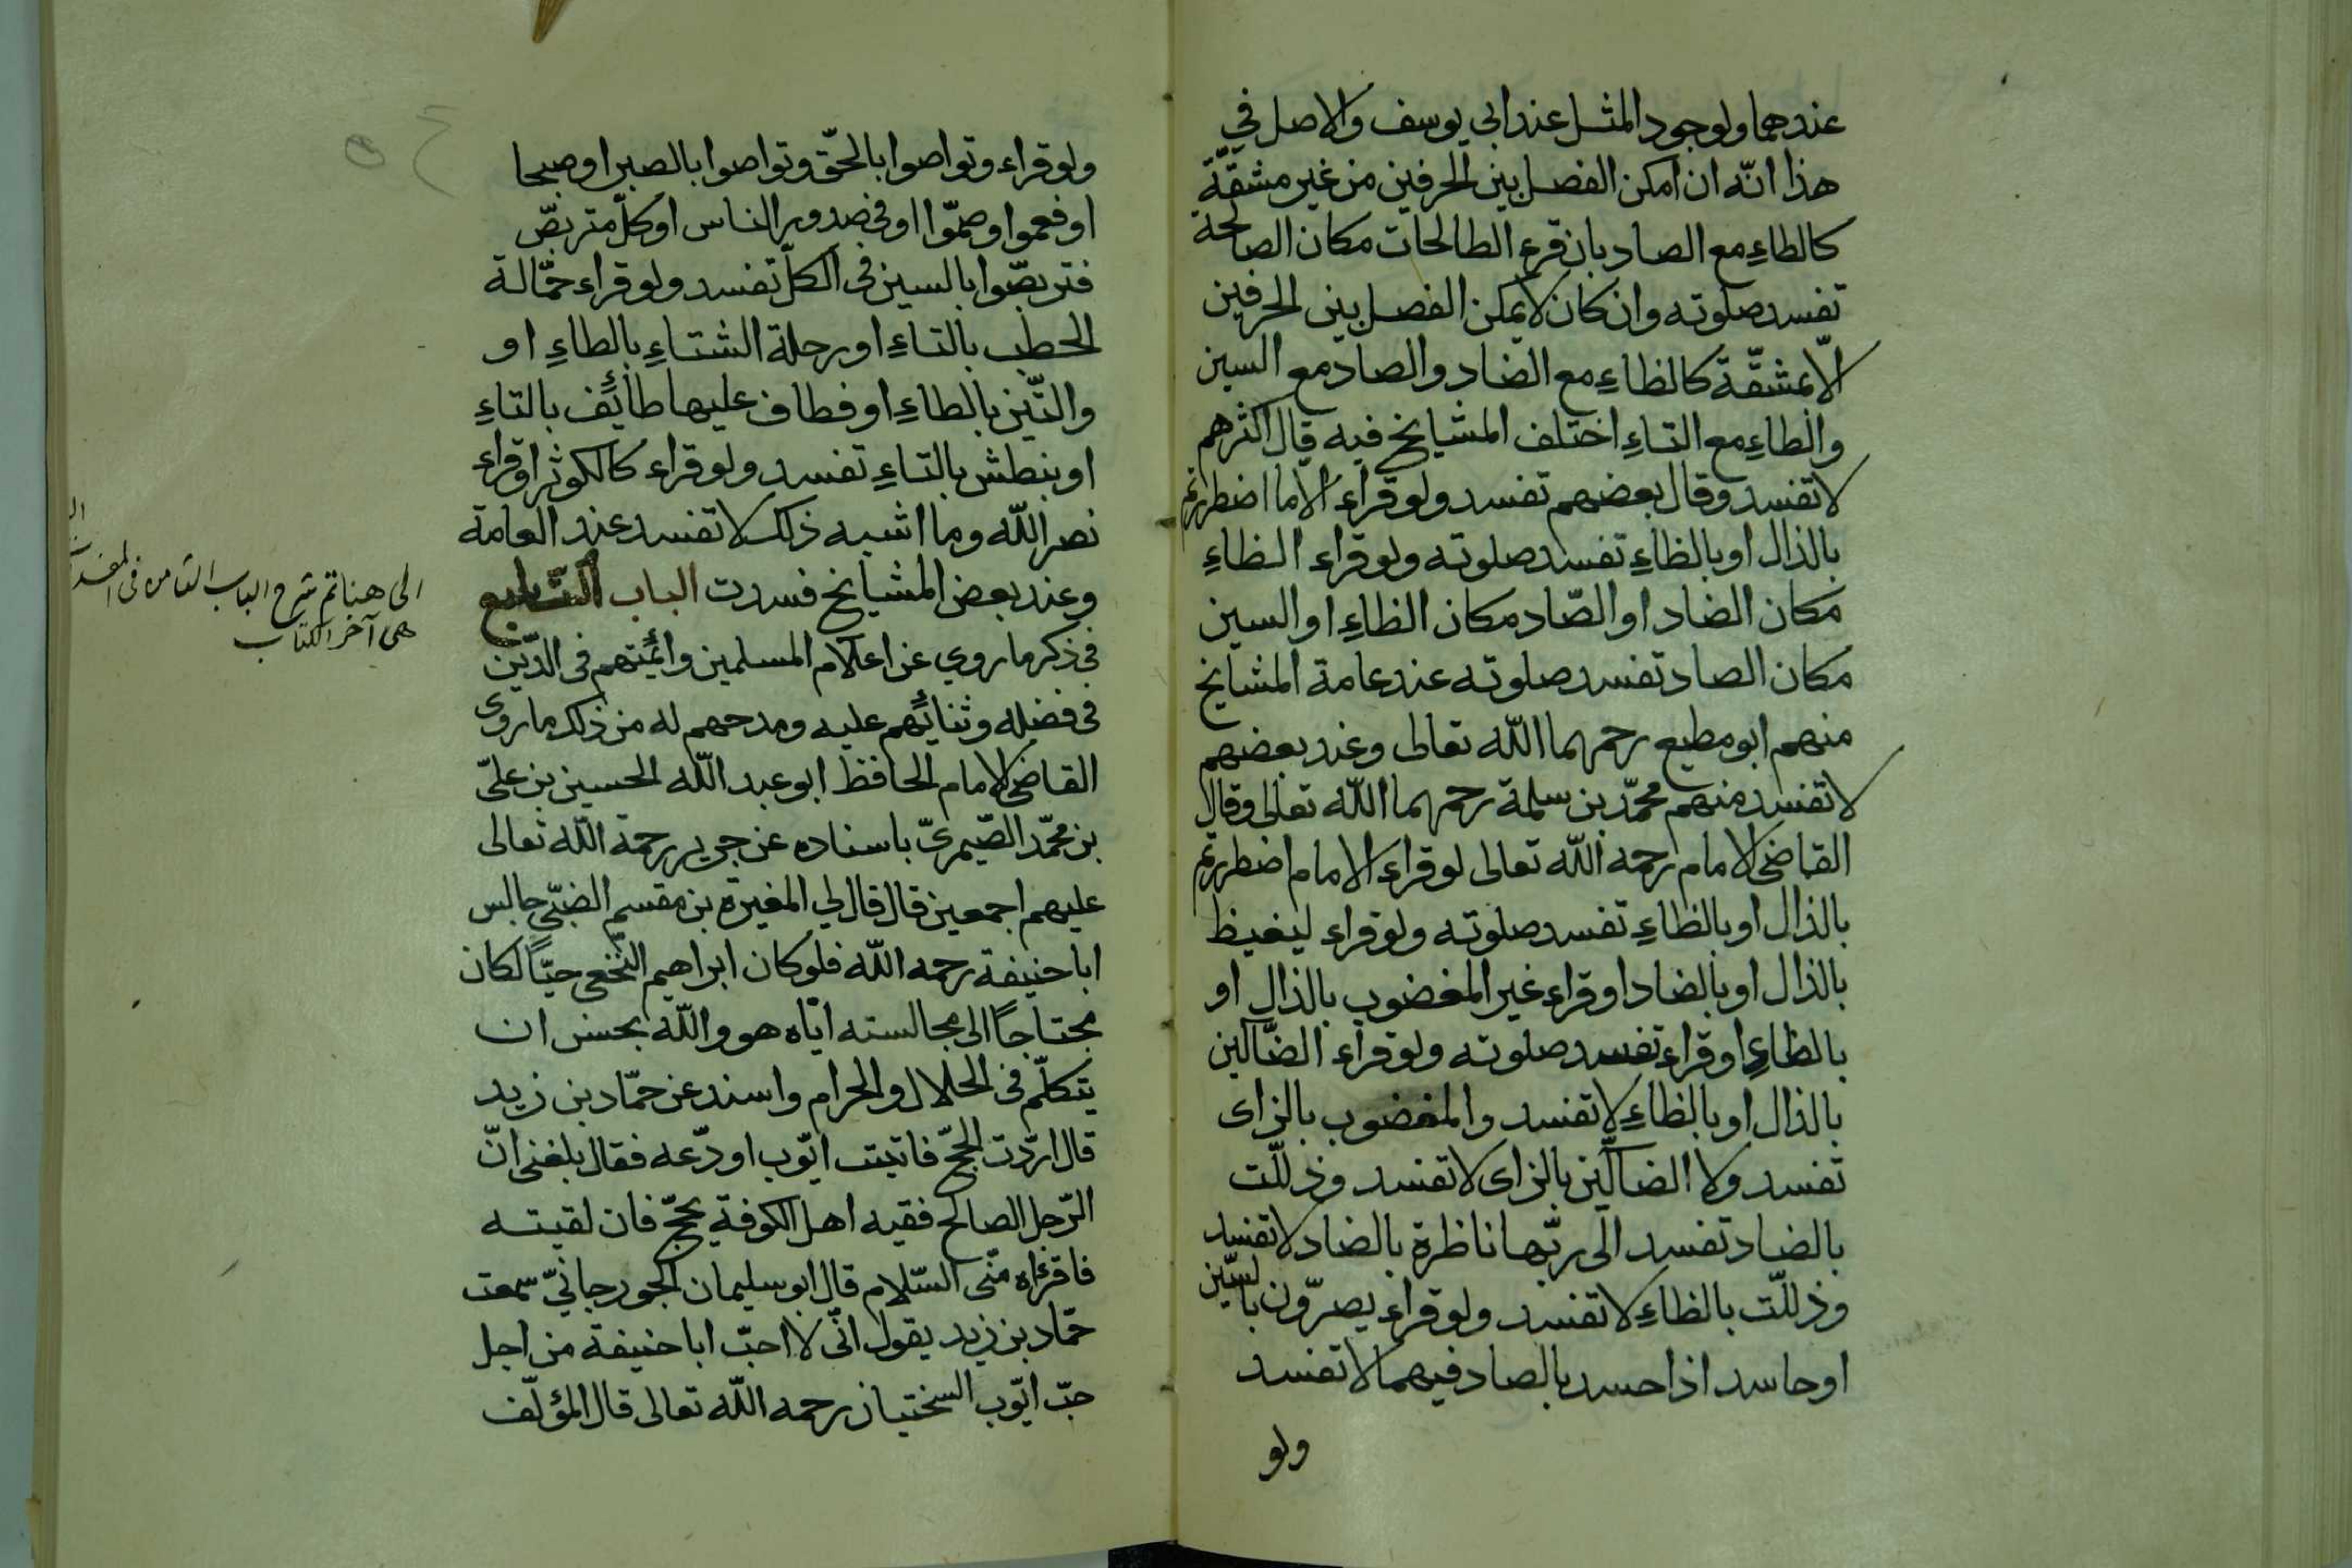 عندهما ولوجود المثل عند ابي يوسف والاصل في
هذا انّه ان امكن الفصل بين الحرفين من غير مشقّة
كالطاءِ مع الصاد بان قرء الطالحات مكان الصالحة
تفسد صلوته وان كان لا يمكن الفصل بين الحرفين
الّا بمشقّة كالظاءِ مع الضاد والصاد مع السين
والطاءِ مع التاءِ اختلف المشايخ فيه قال اكثرهم
لا تفسد وقال بعضهم تفسد ولو قراء الّا ما اضطررتم
بالذال او بالظاءِ تفسد صلوته ولو قراء الظاءِ
مكان الضاد او الصّاد مكان الظاءِ او السين
مكان الصاد تفسد صلوته عند عامة المشايخ
منهم ابو مطيع رحمهما اللّه تعالى وعند بعضهم
لا تفسد منهم محمّد بن سلمة رحمهما اللّه تعالى وقال
القاضى الامام رحمه اللّه تعالى لو قراء الامام اضطررتم
بالذال او بالظاءِ تفسد صلوته ولو قراء ليغيظ
بالذال او بالضاد او قراء غير المغضوب بالذال او
بالظاءِ او قراء تفسد صلوته ولو قراء الضّآلين
بالذال او بالظاءِ لا تفسد والمغضوب بالزاى
تفسد ولا الضآلّين بالزاى لا تفسد وذلّلت
بالضاد تفسد الى ربّها ناظرة بالضاد لا تفسد
وذلّلت بالظاءِ لا تفسد ولو قراء يصرّون بالسّين
او حاسد اذا حسد بالصاد فيهما لا تفسد
ولو
ولو قراء وتواصوا بالحقّ وتواصوا بالصبر او صبحا
او فعموا وصمّوا او فى صدور الناس او كلّ متربصّ
فتربصّوا بالسين فى الكلّ تفسد ولو قراء حمّالة
الحطب بالتاءِ او رحلة الشتاءِ بالطاءِ او
والتّين بالطاءِ او فطاف عليها طائف بالتاءِ
او بنطش بالتاءِ تفسد ولو قراء كالكوثر او قراء
نصر اللّه وما اشبه ذلك لا تفسد عند العامة
وعند بعض المشايخ فسدت الباب التاسع
فى ذكر ما روي عن اعلام المسلمين وائمّتهم فى الدّين
فى فضله وثنائهم عليه ومدحهم له من ذلك ما روى
القاضى الامام الحافظ ابو عبد اللّه الحسين بن علىّ
بن محمّد الصّيمرىّ باسناده عن جرير رحمة اللّه تعالى
عليهم اجمعين قال قال لي المغيرة بن مقسم الضبّى جالس
ابا حنيفة رحمه اللّه فلو كان ابراهيم النّخعى حيّاً لكان
محتاجاً الى مجالسته ايّاه هو واللّه يحسن ان
يتكلّم فى الحلال والحرام واسند عن حمّاد بن زيد
قال اردّت الحجّ فاتيت ايّوب اودّعه فقال بلغنى انّ
الرّجل الصالح فقيه اهل الكوفة يحجّ فان لقيته
فاقراه منّى السّلام قال ابو سليمان الجورجانيّ سمعت
حمّاد بن زيد يقول انّى لا احبّ ابا حنيفة من اجل
حبّ ايّوب السختيان رحمه اللّه تعالى قال المؤلّف
الى هنا تم شرح الباب الثامن فى
هى آخر الكتاب